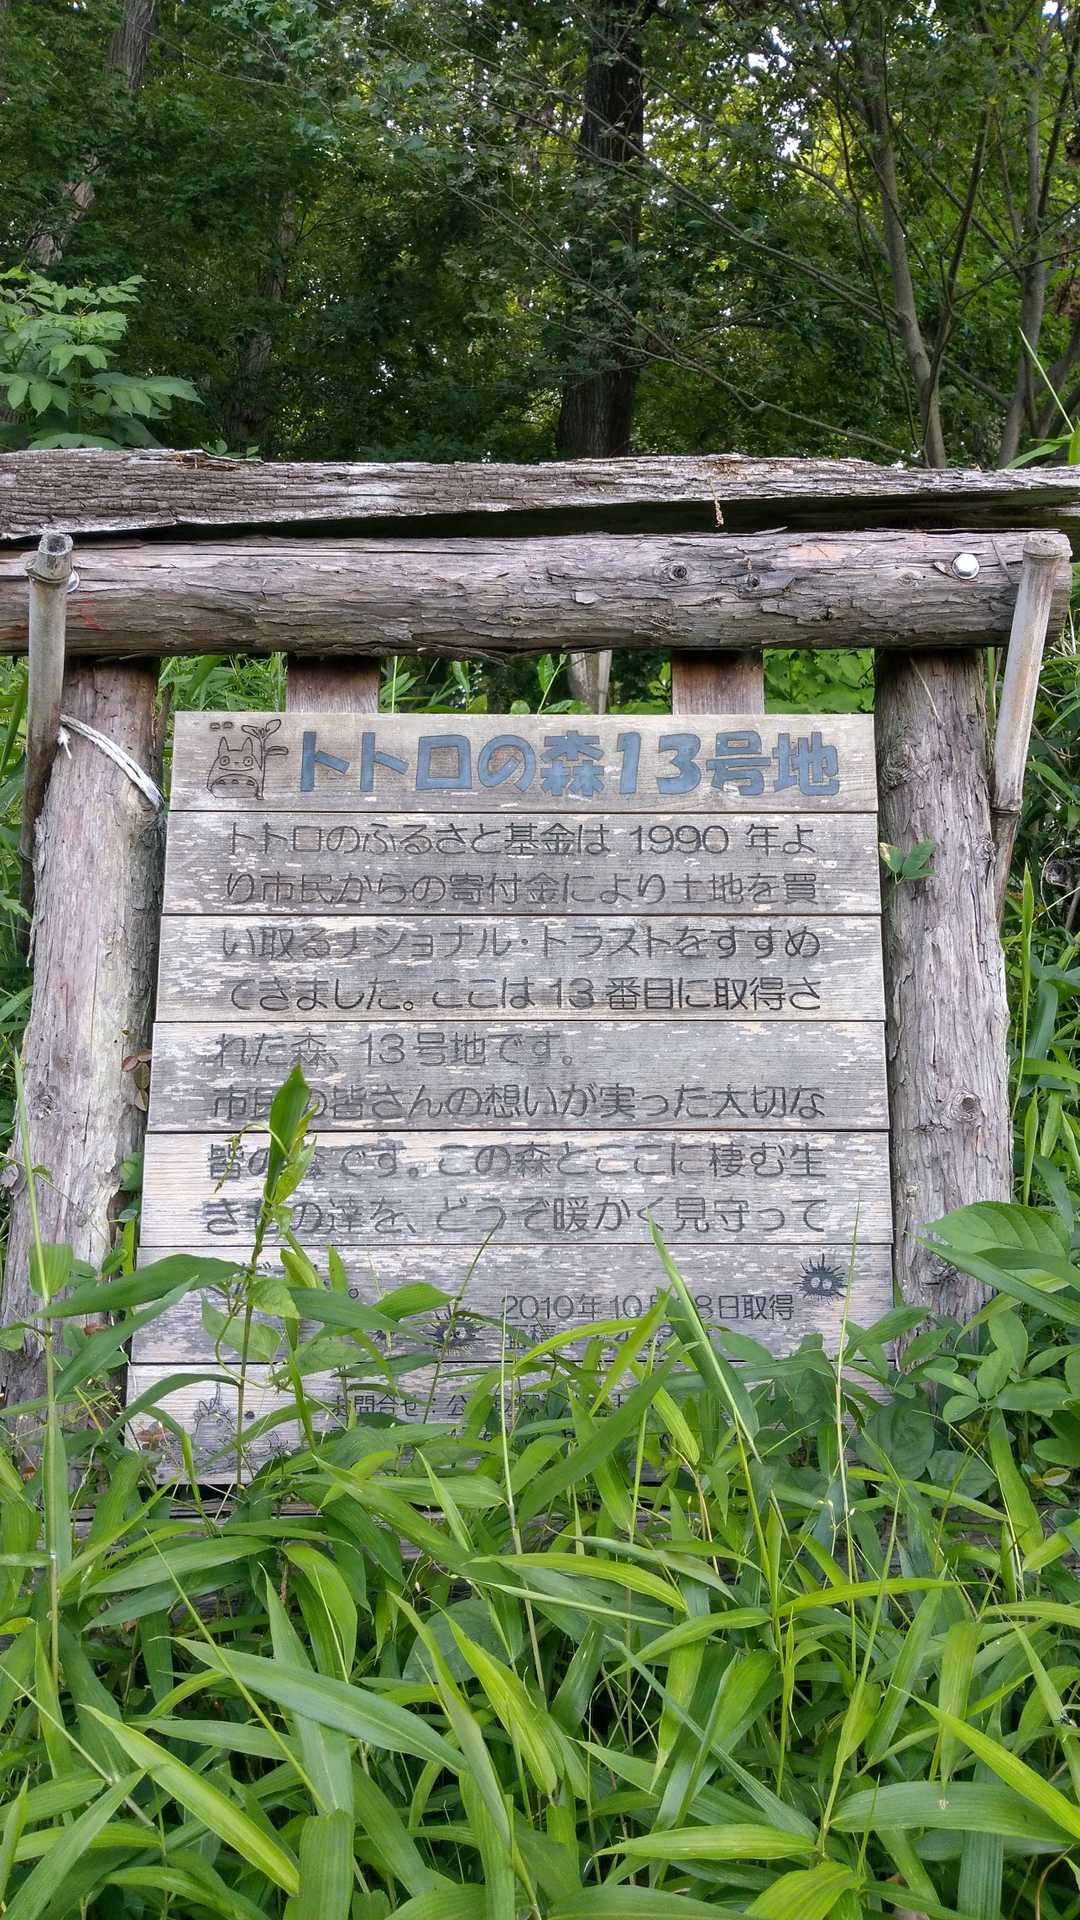 トトロの森13号地
トトロのふるさと基金は 1990 年よ
り市民からの寄付金により土地を買
い取るナショナル・トラストをすすめ
てきました。ここは 13 番目に取得さ
れた森、13号地です。
市民の皆さんの想いが実った大切な
皆の森です。この森とここに棲む生
きもの達を、どうぞ暖かく見守って
2010年10月 8日取得
お問合せ：公